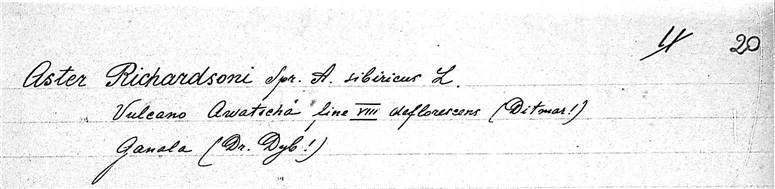 20
Aster Richardsoni Spr. A. sibiricus L.
Vulcano Awatscha fine VIII deflorescens (Ditmar!)
Ganala (Dr. Dyb!)